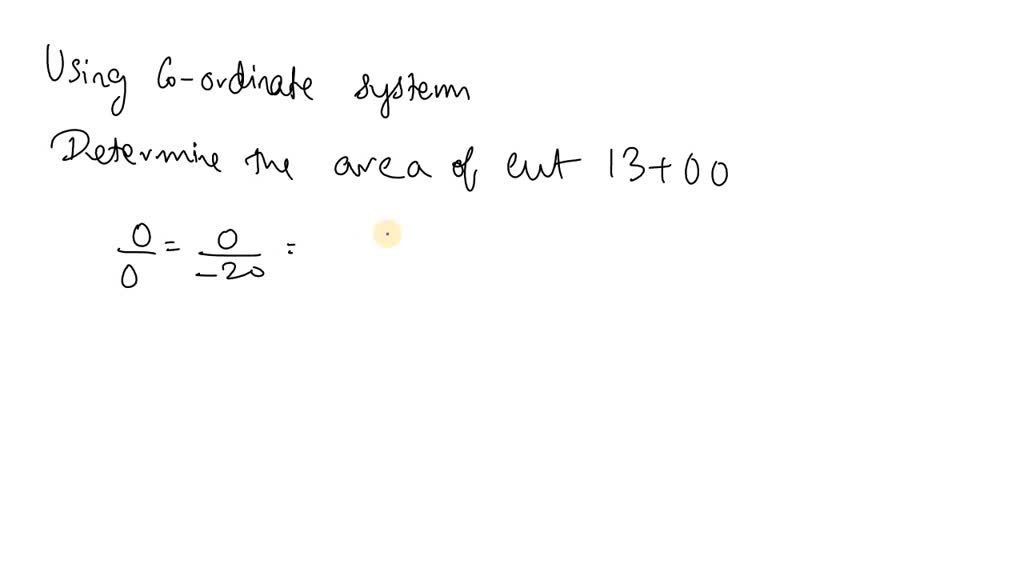 Using Co-ordinate system
Determine the area of cut 13+00
0/0 = 0/-20 =